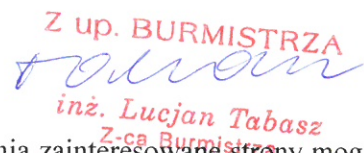 Z up. BURMISTRZA
inż. Lucjan Tabasz
Z-ca Burmistrza
zainteresowane strony mog